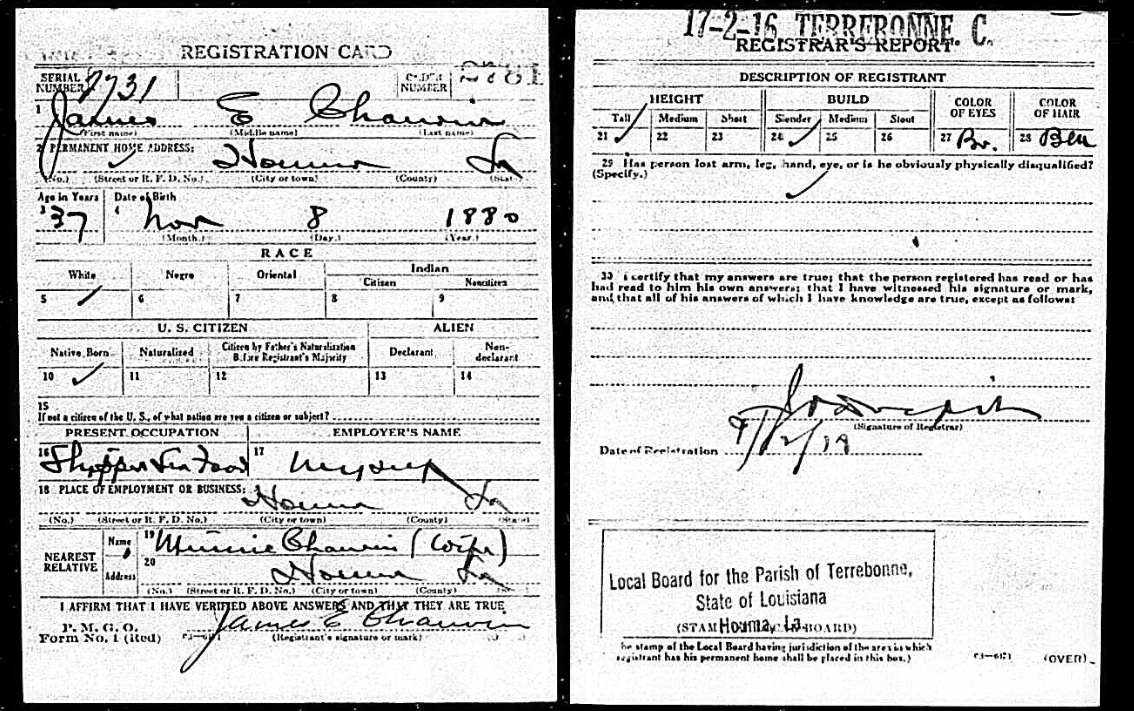 REGISTRATION CARD
SERIAL NUMBER 2731 ORDER NUMBER 2781
1 James E Chauvin
(First name) (Middle name) (Last name)
2 PERMANENT HOME ADDRESS: Houma La
(No.) (Street or R. F. D. No.) (City or town) (County) (State)
Age in Years Date of Birth
3 37 4 Nov 8 1880
(Month.) (Day.) (Year.)
RACE
White Negro Oriental Indian
Citizen Noncitizen
5 ✓ 6 7 8 9
U. S. CITIZEN ALIEN
Native Born Naturalized Citizen by Father's Naturalization Before Registrant's Majority Declarant Non-declarant
10 ✓ 11 12 13 14
15
If not a citizen of the U. S., of what nation are you a citizen or subject?
PRESENT OCCUPATION EMPLOYER'S NAME
16 Shipper Sea Food 17 Myself
18 PLACE OF EMPLOYMENT OR BUSINESS: Houma La
(No.) (Street or R. F. D. No.) (City or town) (County) (State)
NEAREST RELATIVE
Name 19 Minnie Chauvin (Wife)
Address 20 Houma La
(No.) (Street or R. F. D. No.) (City or town) (County) (State)
I AFFIRM THAT I HAVE VERIFIED ABOVE ANSWERS AND THAT THEY ARE TRUE
P. M. G. O.
Form No. 1 (Red) James E Chauvin
(Registrant's signature or mark)
17-2-16 TERREBONNE C.
REGISTRAR'S REPORT
DESCRIPTION OF REGISTRANT
HEIGHT BUILD COLOR OF EYES COLOR OF HAIR
Tall Medium Short Slender Medium Stout
21 ✓ 22 23 24 ✓ 25 26 27 Br. 28 Blk
29 Has person lost arm, leg, hand, eye, or is he obviously physically disqualified?
(Specify.)
30 I certify that my answers are true; that the person registered has read or has
had read to him his own answers; that I have witnessed his signature or mark,
and that all of his answers of which I have knowledge are true, except as follows:
(Signature of Registrar)
Date of Registration 9/12/18
Local Board for the Parish of Terrebonne,
State of Louisiana
Houma, La.
(STAMP OF LOCAL BOARD)
The stamp of the Local Board having jurisdiction of the area in which
registrant has his permanent home shall be placed in this box.)
(OVER)